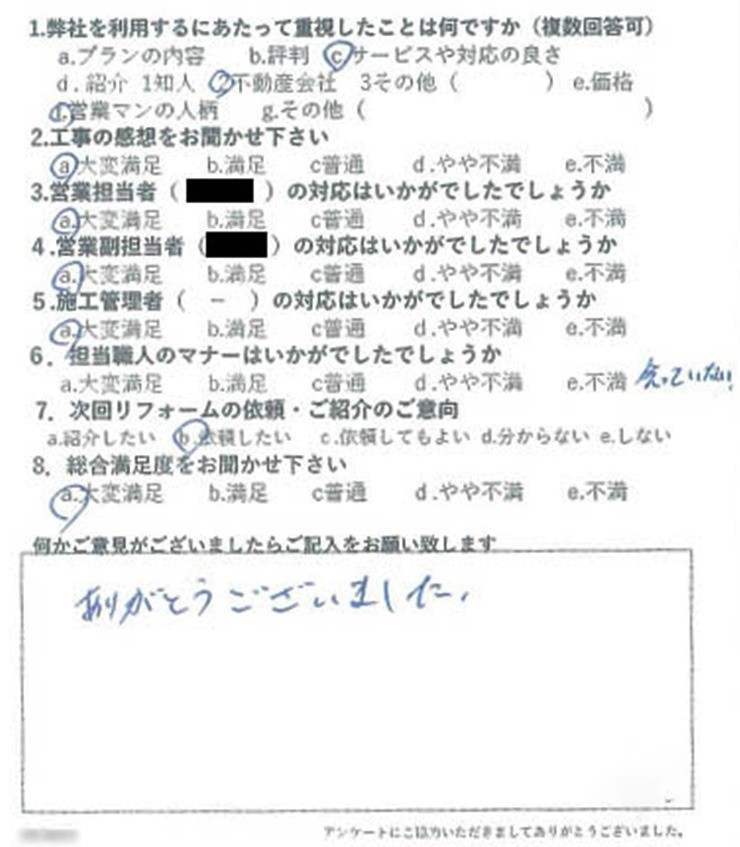 1.弊社を利用するにあたって重視したことは何ですか（複数回答可）
a.プランの内容 b.評判 c.サービスや対応の良さ
d.紹介 1知人 2不動産会社 3その他（ ） e.価格
f.営業マンの人柄 g.その他（ ）
2.工事の感想をお聞かせ下さい
a.大変満足 b.満足 c普通 d.やや不満 e.不満
3.営業担当者（ ）の対応はいかがでしたでしょうか
a.大変満足 b.満足 c普通 d.やや不満 e.不満
4.営業副担当者（ ）の対応はいかがでしたでしょうか
a.大変満足 b.満足 c普通 d.やや不満 e.不満
5.施工管理者（ － ）の対応はいかがでしたでしょうか
a.大変満足 b.満足 c普通 d.やや不満 e.不満
6．担当職人のマナーはいかがでしたでしょうか
a.大変満足 b.満足 c普通 d.やや不満 e.不満 会っていない
7．次回リフォームの依頼・ご紹介のご意向
a.紹介したい b.依頼したい c.依頼してもよい d.分からない e.しない
8．総合満足度をお聞かせ下さい
a.大変満足 b.満足 c普通 d.やや不満 e.不満
何かご意見がございましたらご記入をお願い致します
ありがとうございました。
アンケートにご協力いただきましてありがとうございました。